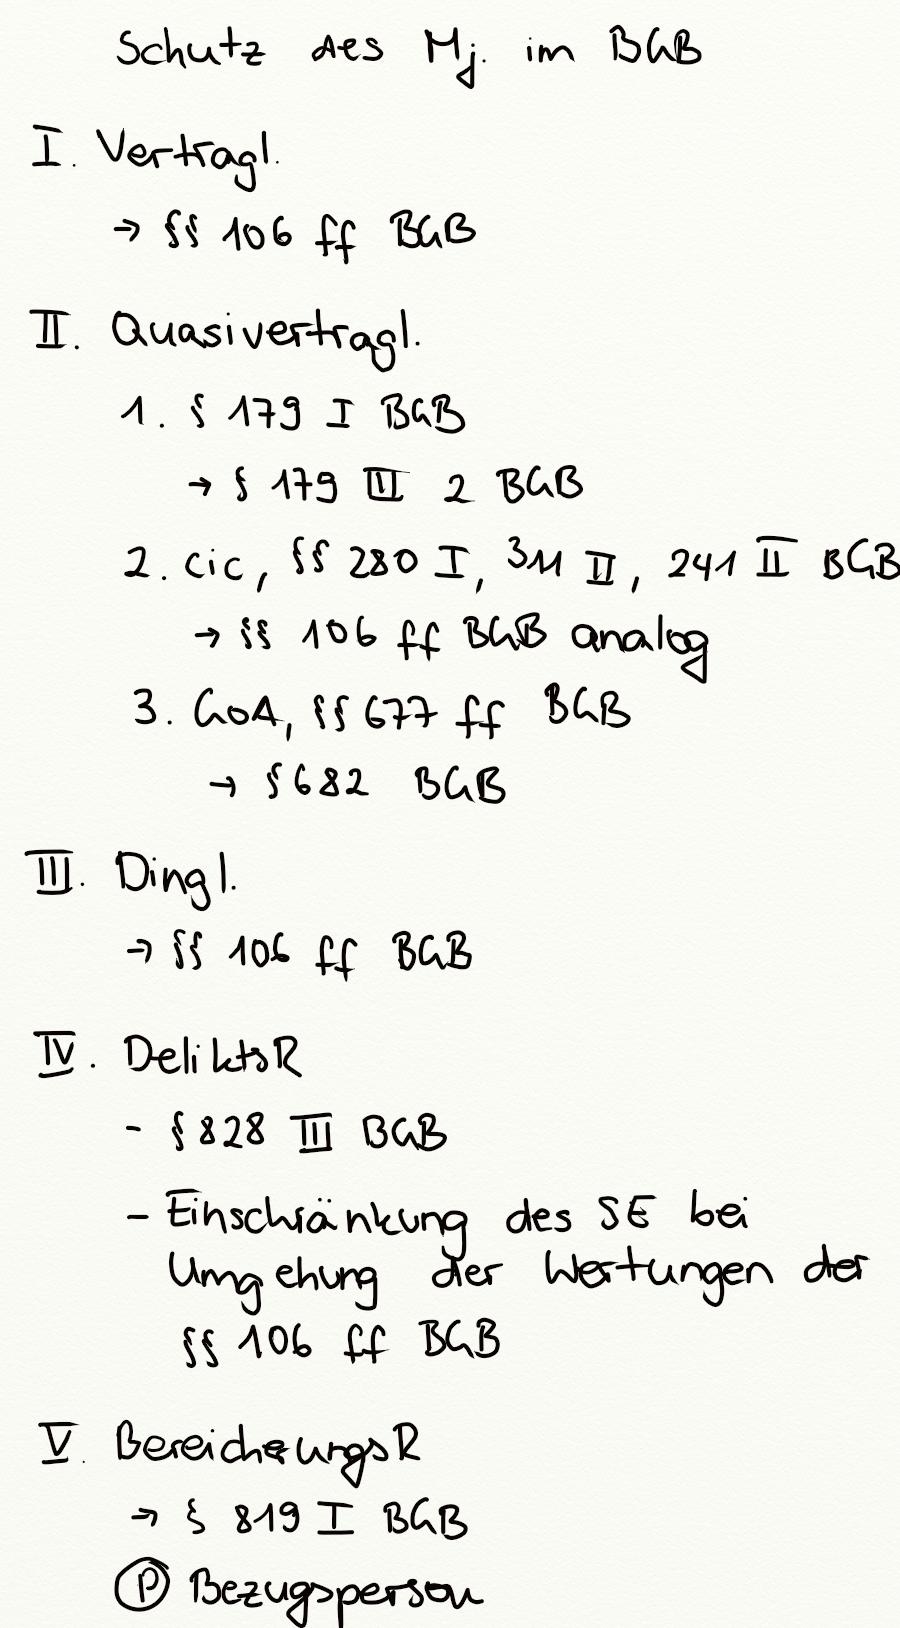 Schutz des Mj. im BGB
I. Vertragl.
→ §§ 106 ff BGB
II. Quasivertragl.
1. § 179 I BGB
→ § 179 III 2 BGB
2. cic, §§ 280 I, 311 II, 241 II BGB
→ §§ 106 ff BGB analog
3. GoA, §§ 677 ff BGB
→ § 682 BGB
III. Dingl.
→ §§ 106 ff BGB
IV. DeliktsR
- § 828 III BGB
- Einschränkung des SE bei
Umgehung der Wertungen der
§§ 106 ff BGB
V. BereicherungsR
→ § 819 I BGB
Ⓟ Bezugsperson